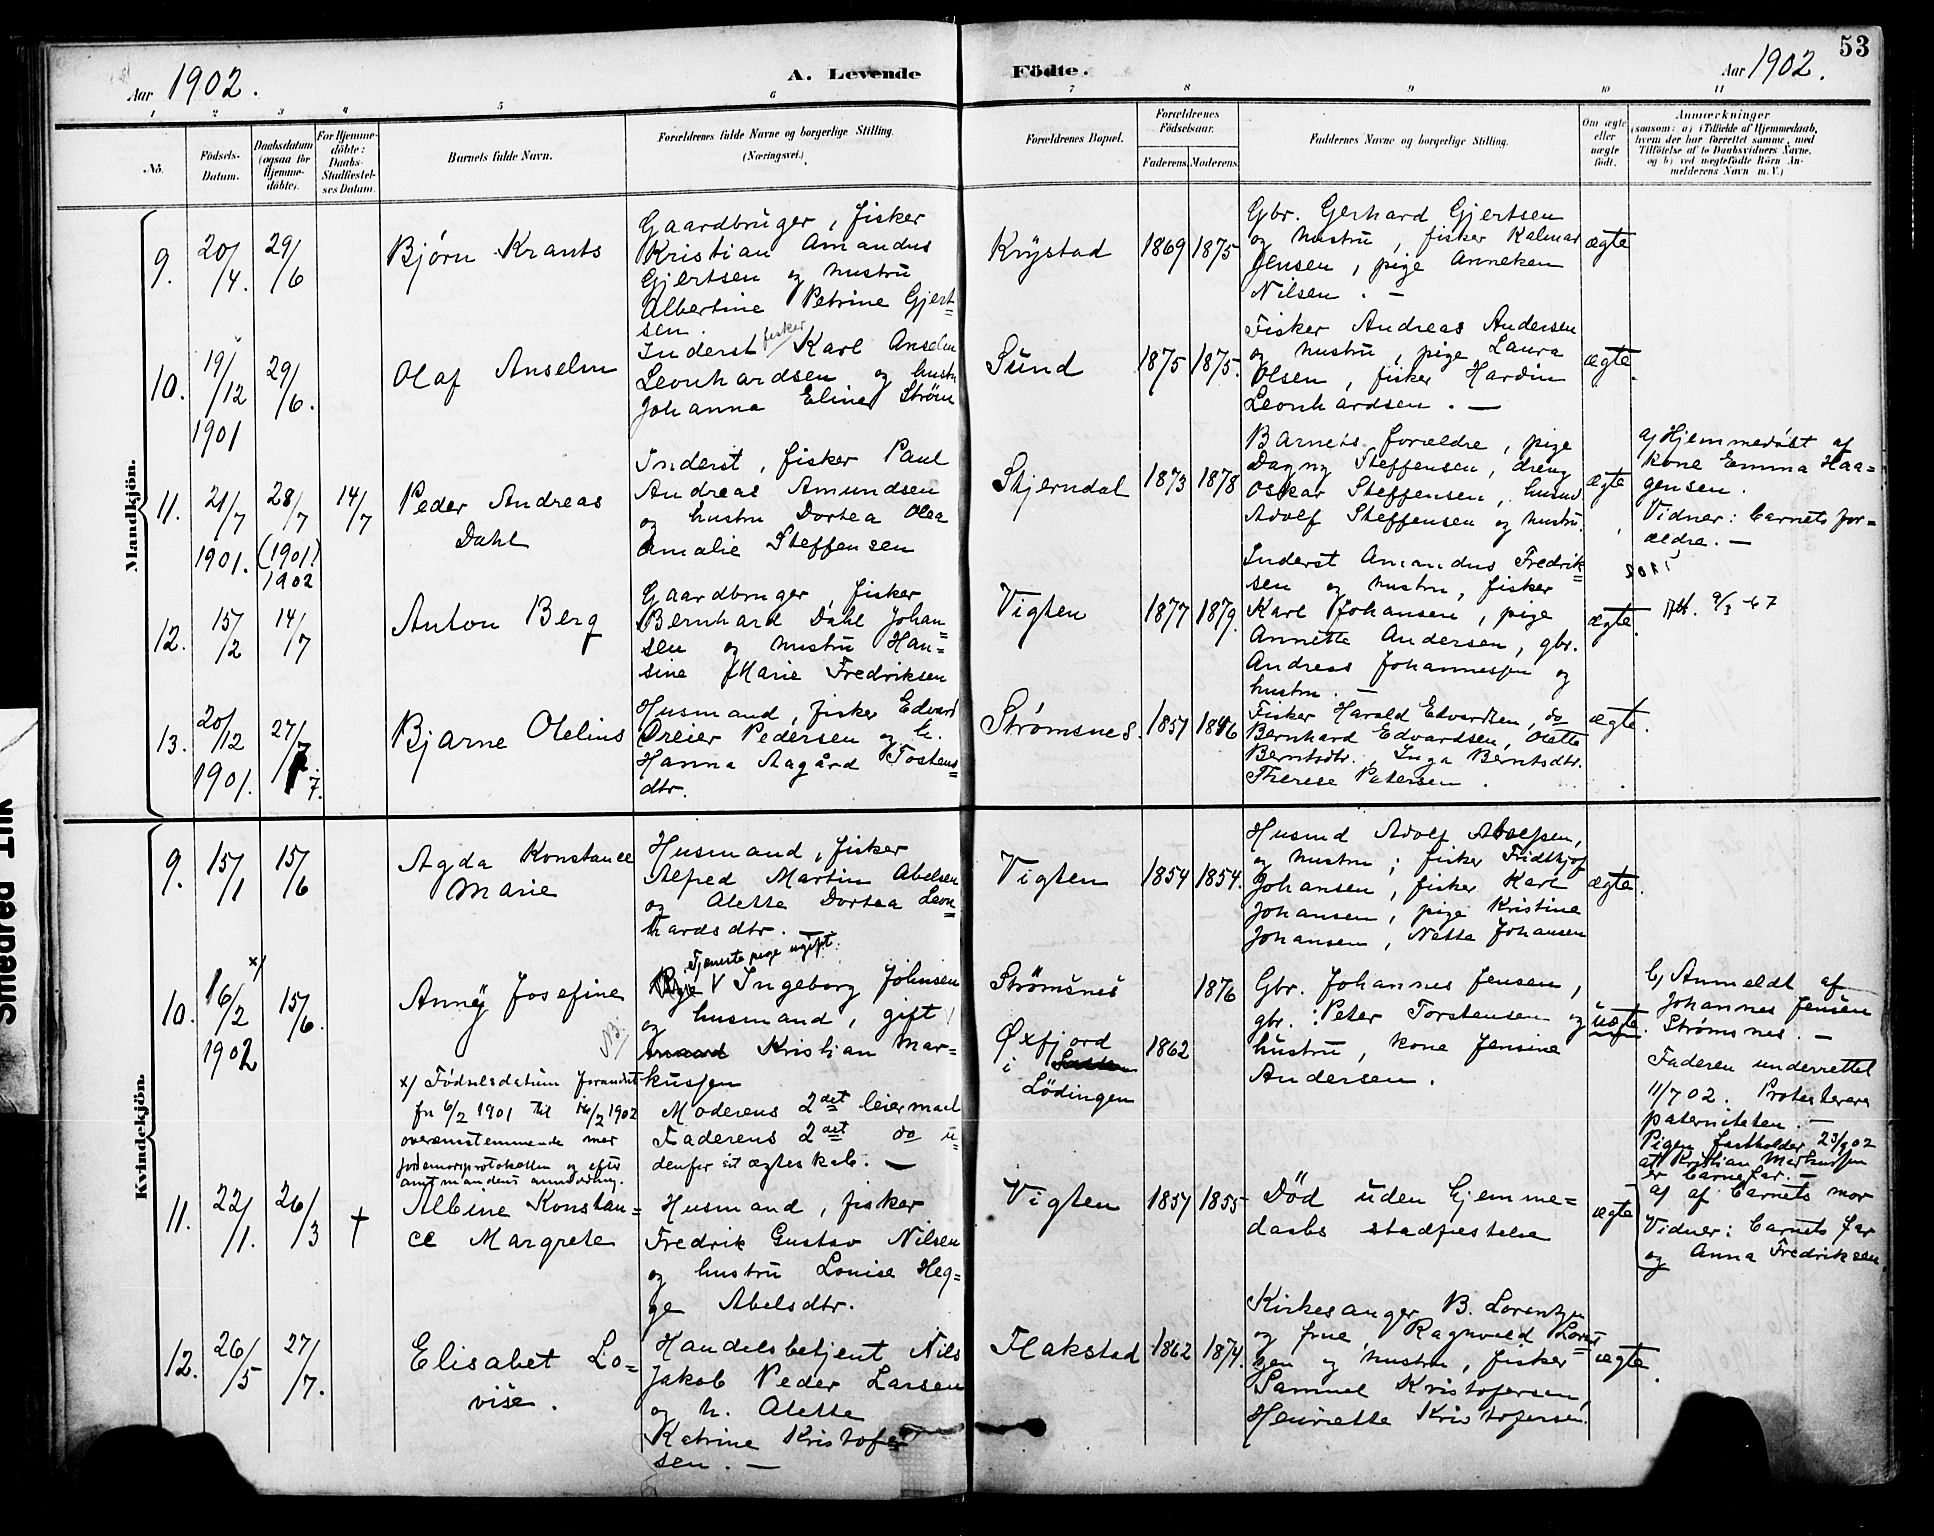 53
Aar 1902.
A. Levende Födte.
Aar 1902.
1 2 3 4 5 6 7 8 9 10 11
No.
Födsels-Datum.
Daabsdatum (ogsaa for Hjemme-döbte).
For Hjemme-döbte: Daabs-Stadfæstel-ses Datum.
Barnets fulde Navn.
Forældrenes fulde Navne og borgerlige Stilling.
(Næringsvei.)
Forældrenes Bopæl.
Forældrenes Födselsaar.
Faderens. Moderens.
Faddernes Navne og borgerlige Stilling.
Om ægte eller uægte födt.
Anmærkninger
(saasom: a) i Tilfælde af Hjemmedaab, hvem der har forrettet samme, med Tilföielse af to Daabsvidners Navne, og b) ved uægtefödte Börn An-melderens Navn m. V.)
Mandkjön.
9.
20/4.
29/6
Bjørn Krants
Gaardbruger, fisker
Kristian Amandus
Gjertsen og hustru
Albertine Petrine Gjert-
sen.
Krystad
1869
1875
Gbr. Gerhard Gjertsen
og hustru, fisker Kalmar
Jensen, pige Anneken
Nilsen. —
ægte
10.
19/12
1901
29/6.
Olaf Anselm
Inderst fisker Karl Anselm
Leonhardsen og hustru
Johanna Eline Strøm
Sund
1875
1875.
Fisker Andreas Andersen
og hustru, pige Laura
Olsen, fisker Hardin
Leonhardsen. —
ægte.
11.
21/7
1901.
28/7
(1901)
1902
14/7
Peder Andreas
Dahl
Inderst, fisker Paul
Andreas Amundsen
og hustru Dortea Olea
Amalie Steffensen
Skjerndal
1873
1878
Barnets forældre, pige
Dagny Steffensen, dreng
Oskar Steffensen, husmd.
Adolf Steffensen og hustru.
ægte
a) Hjemmedøbt af
kone Emma Haa-
gensen.
Vidner: Barnets for-
ældre. —
12.
15/2
14/7
Anton Berg
Gaardbruger, fisker
Bernhard Dahl Johan-
sen og hustru Han-
sine Marie Fredriksen
Vigten
1877
1879.
Inderst Amandus Fredrik-
sen og hustru, fisker
Karl Johansen, pige
Annette Andersen, gbr.
Andreas Johannessen og
hustru. —
ægte.
Att. 9/3 -67
13.
20/12
1901.
27/7.
7.
Bjarne Olelius
Husmand, fisker Edvard
Dreier Pedersen og h.
Hanna Aagård Tostens-
dtr.
Strømsnes.
1857
1846
Fisker Harald Edvardsen, do
Bernhard Edvardsen, Olette
Berntsdtr., Inga Berntsdtr.
Therese Petersen.
ægte.
Kvindekjön.
9.
15/1
15/6
Agda Konstance
Marie
Husmand, fisker
Alfred Martin Abelsen
og Alette Dortea Leon-
hardsdtr. —
Vigten
1854
1854.
Husmd Adolf Abelsen,
og hustru; fisker Fridthjof
Johansen, fisker Karl
Johansen, pige Kristine
Johansen, Netta Johansen
ægte.
10.
x)
16/2
1902
15/6.
Anny Josefine
NB!
Tjenestepige ugift.
Pige Ingeborg Johnsen
og husmand, gift
Kristian Mar-
kussen
Moderens 2det leiermaal
Faderens 2det do u-
denfor sit ægteskab. —
x) Fødselsdatum forandret
fra 6/2 1901 til 16/2 1902
overensstemmende med
jordemorprotokollen og efter
amtmandens anmodning.
Strømsnes
Øxfjord
i
Lødingen
1862
1876
Gbr. Johannes Jensen,
gbr. Peter Torstensen og
hustru, kone Jensine
Andersen.
uægte.
b) Anmeldt af
Johannes Jensen
Strømsnes. —
Faderen underrettet
11/7 02. Protesterer
paterniteten. —
Pigen fastholder 23/9 02
att Kristian Markussen
er barnefar. —
11.
22/1.
26/3
†
Albine Konstan-
ce Margrete
Husmand, fisker
Fredrik Gustav Nilsen
og hustru Louise Heg-
ge Abelsdtr.
Vigten
1857
1855
Død uden hjemme-
daabs stadfæstelse
ægte
a) af barnets mor
Vidner: barnets far
og Anna Fredriksen.
12.
26/5
27/7.
Elisabet Lo-
vise.
Handelsbetjent Nils
Jakob Peder Larsen
og h. Alette
Katrine Kristofer-
sen. —
Flakstad
1862
1874.
Kirkesanger B. Lorentzen
og frue Ragnvald Lorent-
zen og hustru, fisker
Samuel Kristofersen,
Henriette Kristofersen.
ægte.